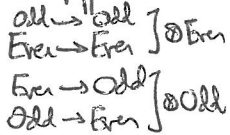 Odd → Odd
Even → Even ] ⊗ Even
Even → Odd
Odd → Even ] ⊗ Odd